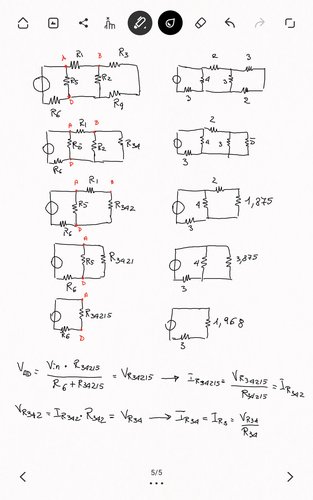 A R1 B R3
R5 R2
D R4
R6
2 3
4 3
3 2
A R1 B
R5 R2 R34
R6 D
2
4 3 5
3
A R1 B
R5 R342
R6 D
2
4 1,875
3
A
R5 R3421
R6 D
4 3,875
3
A
R34215
R6 D
1,968
3
VAD = Vin · R34215 / R6 + R34215 = VR34215 → IR34215 = VR34215 / R34215 = IR342
VR342 = IR342 · R342 = VR34 → IR34 = IR3 = VR34 / R34
5/5